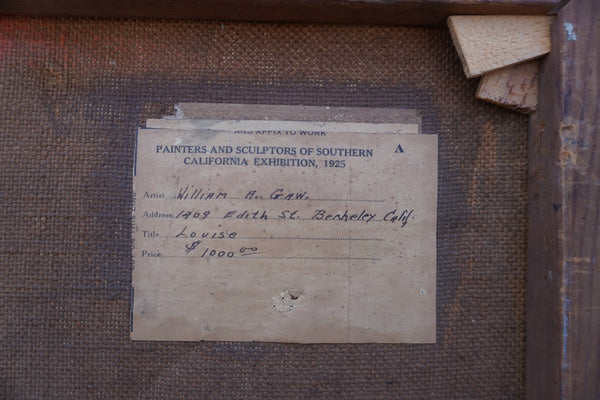 AND AFFIX TO WORK
PAINTERS AND SCULPTORS OF SOUTHERN A
CALIFORNIA EXHIBITION, 1925
Artist William A. Gaw.
Address 1409 Edith St. Berkeley Calif.
Title Louise
Price $1000 00